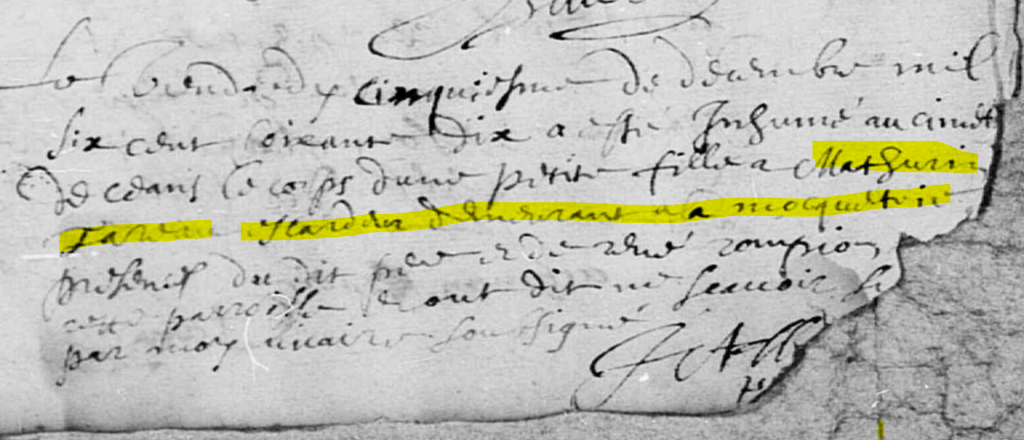 Le Vendredy cinquiesme de decembre mil
six cent soixante dix a esté Inhumé au cimet
de ceans le corps dune petite fille a Mathurin
demeurant a la mocqueterie
presence du dit pere et de rené rompion
cette parroisse et ont dit ne scavoir si
par moy vicaire soussigné